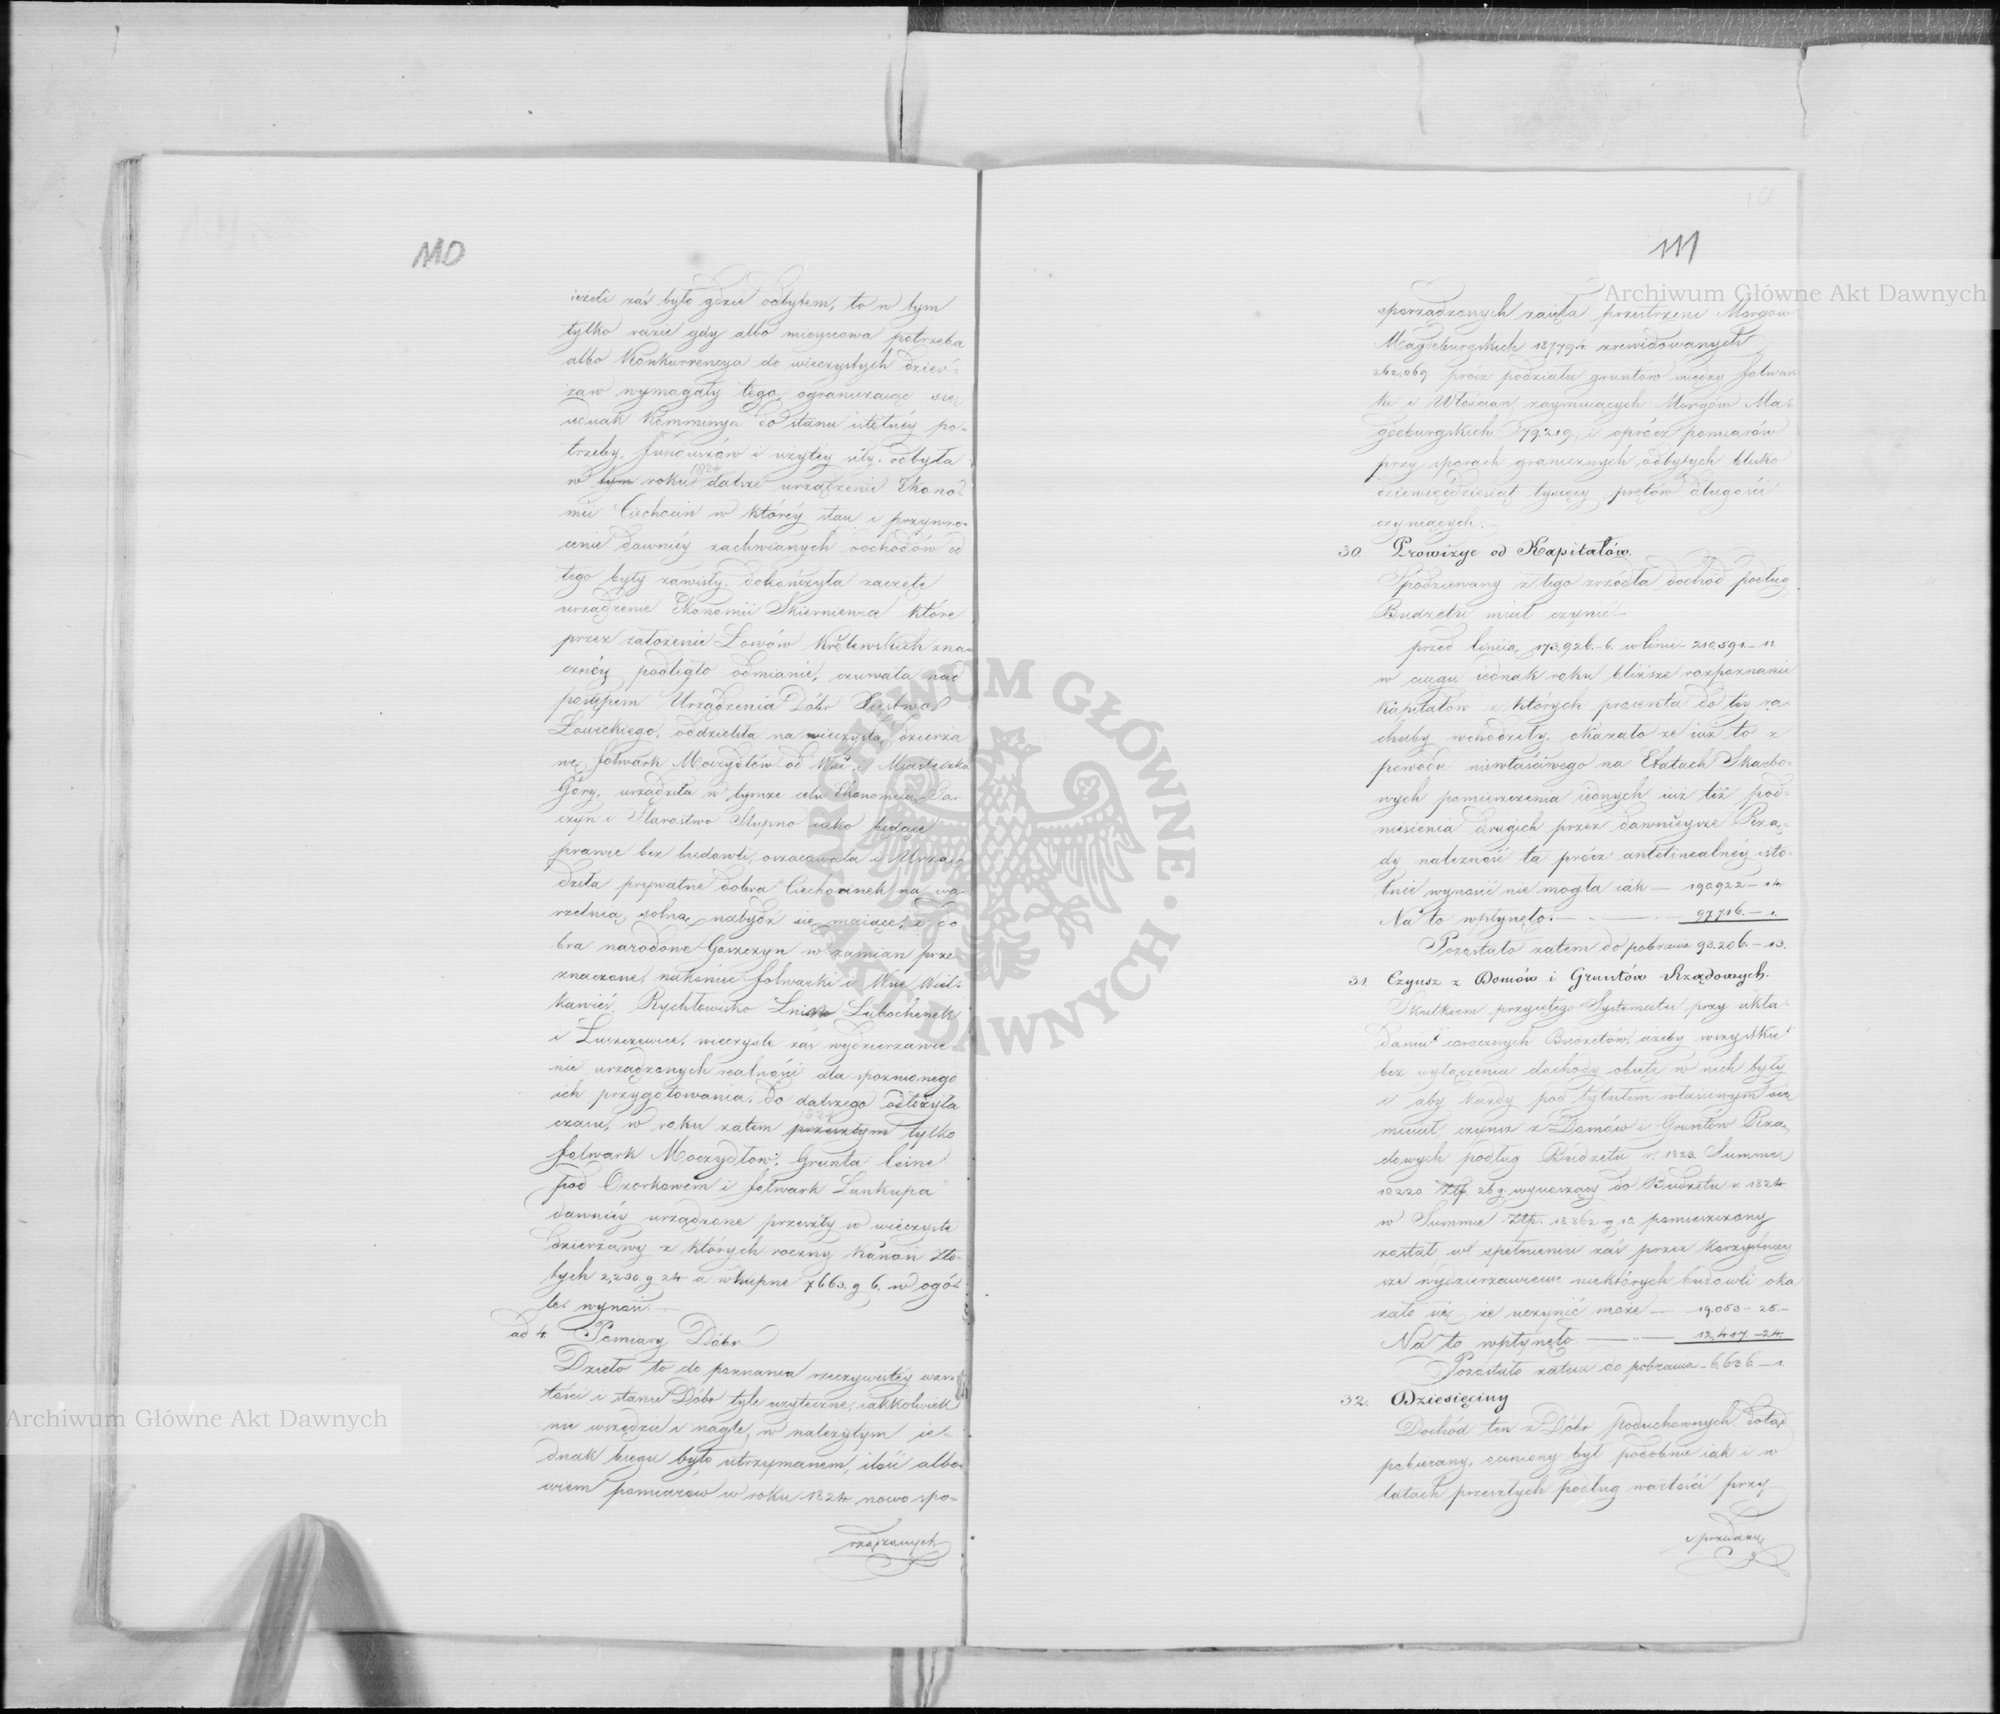 110
ieżeli zaś było gdzie odbytem, to w tym
tylko razie gdy albo mieyscowa potrzeba
albo Konkurrencya do wieczystych dzier-
żaw wymagały tego, ograniczaiąc się
iednak Kommissya do stanu istotnéy po-
trzeby, funduszów i użytey siły. odbyła
w tym roku 1824 dalsze urządzenie Ekono-
mii Ciechocin w któréy stan i przywró-
cenie dawniéy zachwianych dochodów od
tego były zawisły. dokończyła zaczęte
urządzenie Ekonomii Skierniewice które
przez założenie Łowów Królewskich zna-
cznéy podległo odmianie, czuwała nad
postępem Urządzenia Dóbr Xięstwa
Łowickiego, oddzieliła na wieczystą dzierża
wę, folwark Moczydłów od Wsi i Miasteczka
Góry, urządziła w tymże celu Ekonomią
czyn i Starostwo Słupno iako będące
prawie bez budowli, oszacowała i Urzą-
dziła prywatne dobra Ciechocinek na wa-
rzelnią solną nabydź się maiące, i do
bra narodowe Goszczyn w zamian prze
znaczone, nakoniec folwarki i Wsie Wiel-
kawieś, Rychłowisko Lubochenek
i wieczyste zaś wydzierżawie-
nie urządzonych realności dla spoznionego
ich przygotowania, do dalszego odłożyła
czasu, w roku zatem przeszłym 1824 tylko
folwark Moczydłow. Grunta leśne
pod Ozorkowem i folwark Łankupa
dawniéy urządzone przeszły w wieczyste
dzierżawy z których roczny Kanon Zło-
tych 2,230. g 24 a wkupne 7663. g 6. w ogó-
le wynosi.
ad 4. Pomiary Dóbr
Dzieło to do poznania rzeczywistéy war-
tości i stanu Dóbr tyle użyteczne, iakkolwiek
nie wszędzie i nagle, w należytym ie-
dnak biegu było utrzymanem, ilość albo-
wiem pomiarów w roku 1824 nowo spo-
rządzonych
111
sporządzonych zaięła przestrzeni Morgów
Magdeburgskich 187794 zrewidowanych
262,069 prócz podziału gruntów między folwar
ki i Włościan, zaymuiących Morgów Ma-
gdeburgskich 79.219, i oprócz pomiarów
przy sporach granicznych odbytych blisko
dziewięćdziesiąt tysięcy prętów długości
czyniących.
30. Prowizye od Kapitałów.
Spodziewany z tego zrzódła dochód podług
Budżetu miał czynić
przed liniią 173,926.-6. w linii - 210,591.- 11
w ciągu iednak roku bliższe rozpoznanie
Kapitałów z których procenta do téy ra-
chuby wchodziły, okazało że iuż to z
powodu niewłaściwego na Etatach Skarbo-
wych pomieszczenia iednych iuż też pod-
niesienia drugich przez dawnieysze Rzą-
dy należność ta prócz antelinealnéy isto-
tnie wynosić nie mogła iak — 190,922 - 14
Na to wpłynęło. — 97,716. - 1.
Pozostało zatem do pobrania 93.206. - 13.
31. Czynsz z Domów i Gruntów Rządowych.
Skutkiem przyiętego Systematu przy ukła-
daniu corocznych Budżetów, ażeby wszystkie
bez wyłączenia dochody obięte w nich były
i aby każdy pod tytułem właściwym się
mieścił, czynsz z Domów i Gruntów Rzą-
dowych podług Budżetu r. 1823. Summę
10220. Złp. 26 g. wynoszący do Budżetu r. 1824
w Summie Złp. 18862. g 10. pomieszczony
został w spełnieniu zaś przez korzystniey
sze wydzierżawienie niektórych budowli oka
zało się, że uczynić może — 19.053 - 25 -
Na to wpłynęło — 12,417 - 24.
Pozostało zatem do pobrania - 6,636 - 1.
32. Dziesięciny
Dochód ten z Dóbr poduchownych dotąd
pobierany, oceniony był podobnie iak i w
latach przeszłych podług wartości przy
sprzedaży
Archiwum Główne Akt Dawnych
Archiwum Główne Akt Dawnych
ARCHIWUM GŁÓWNE AKT DAWNYCH